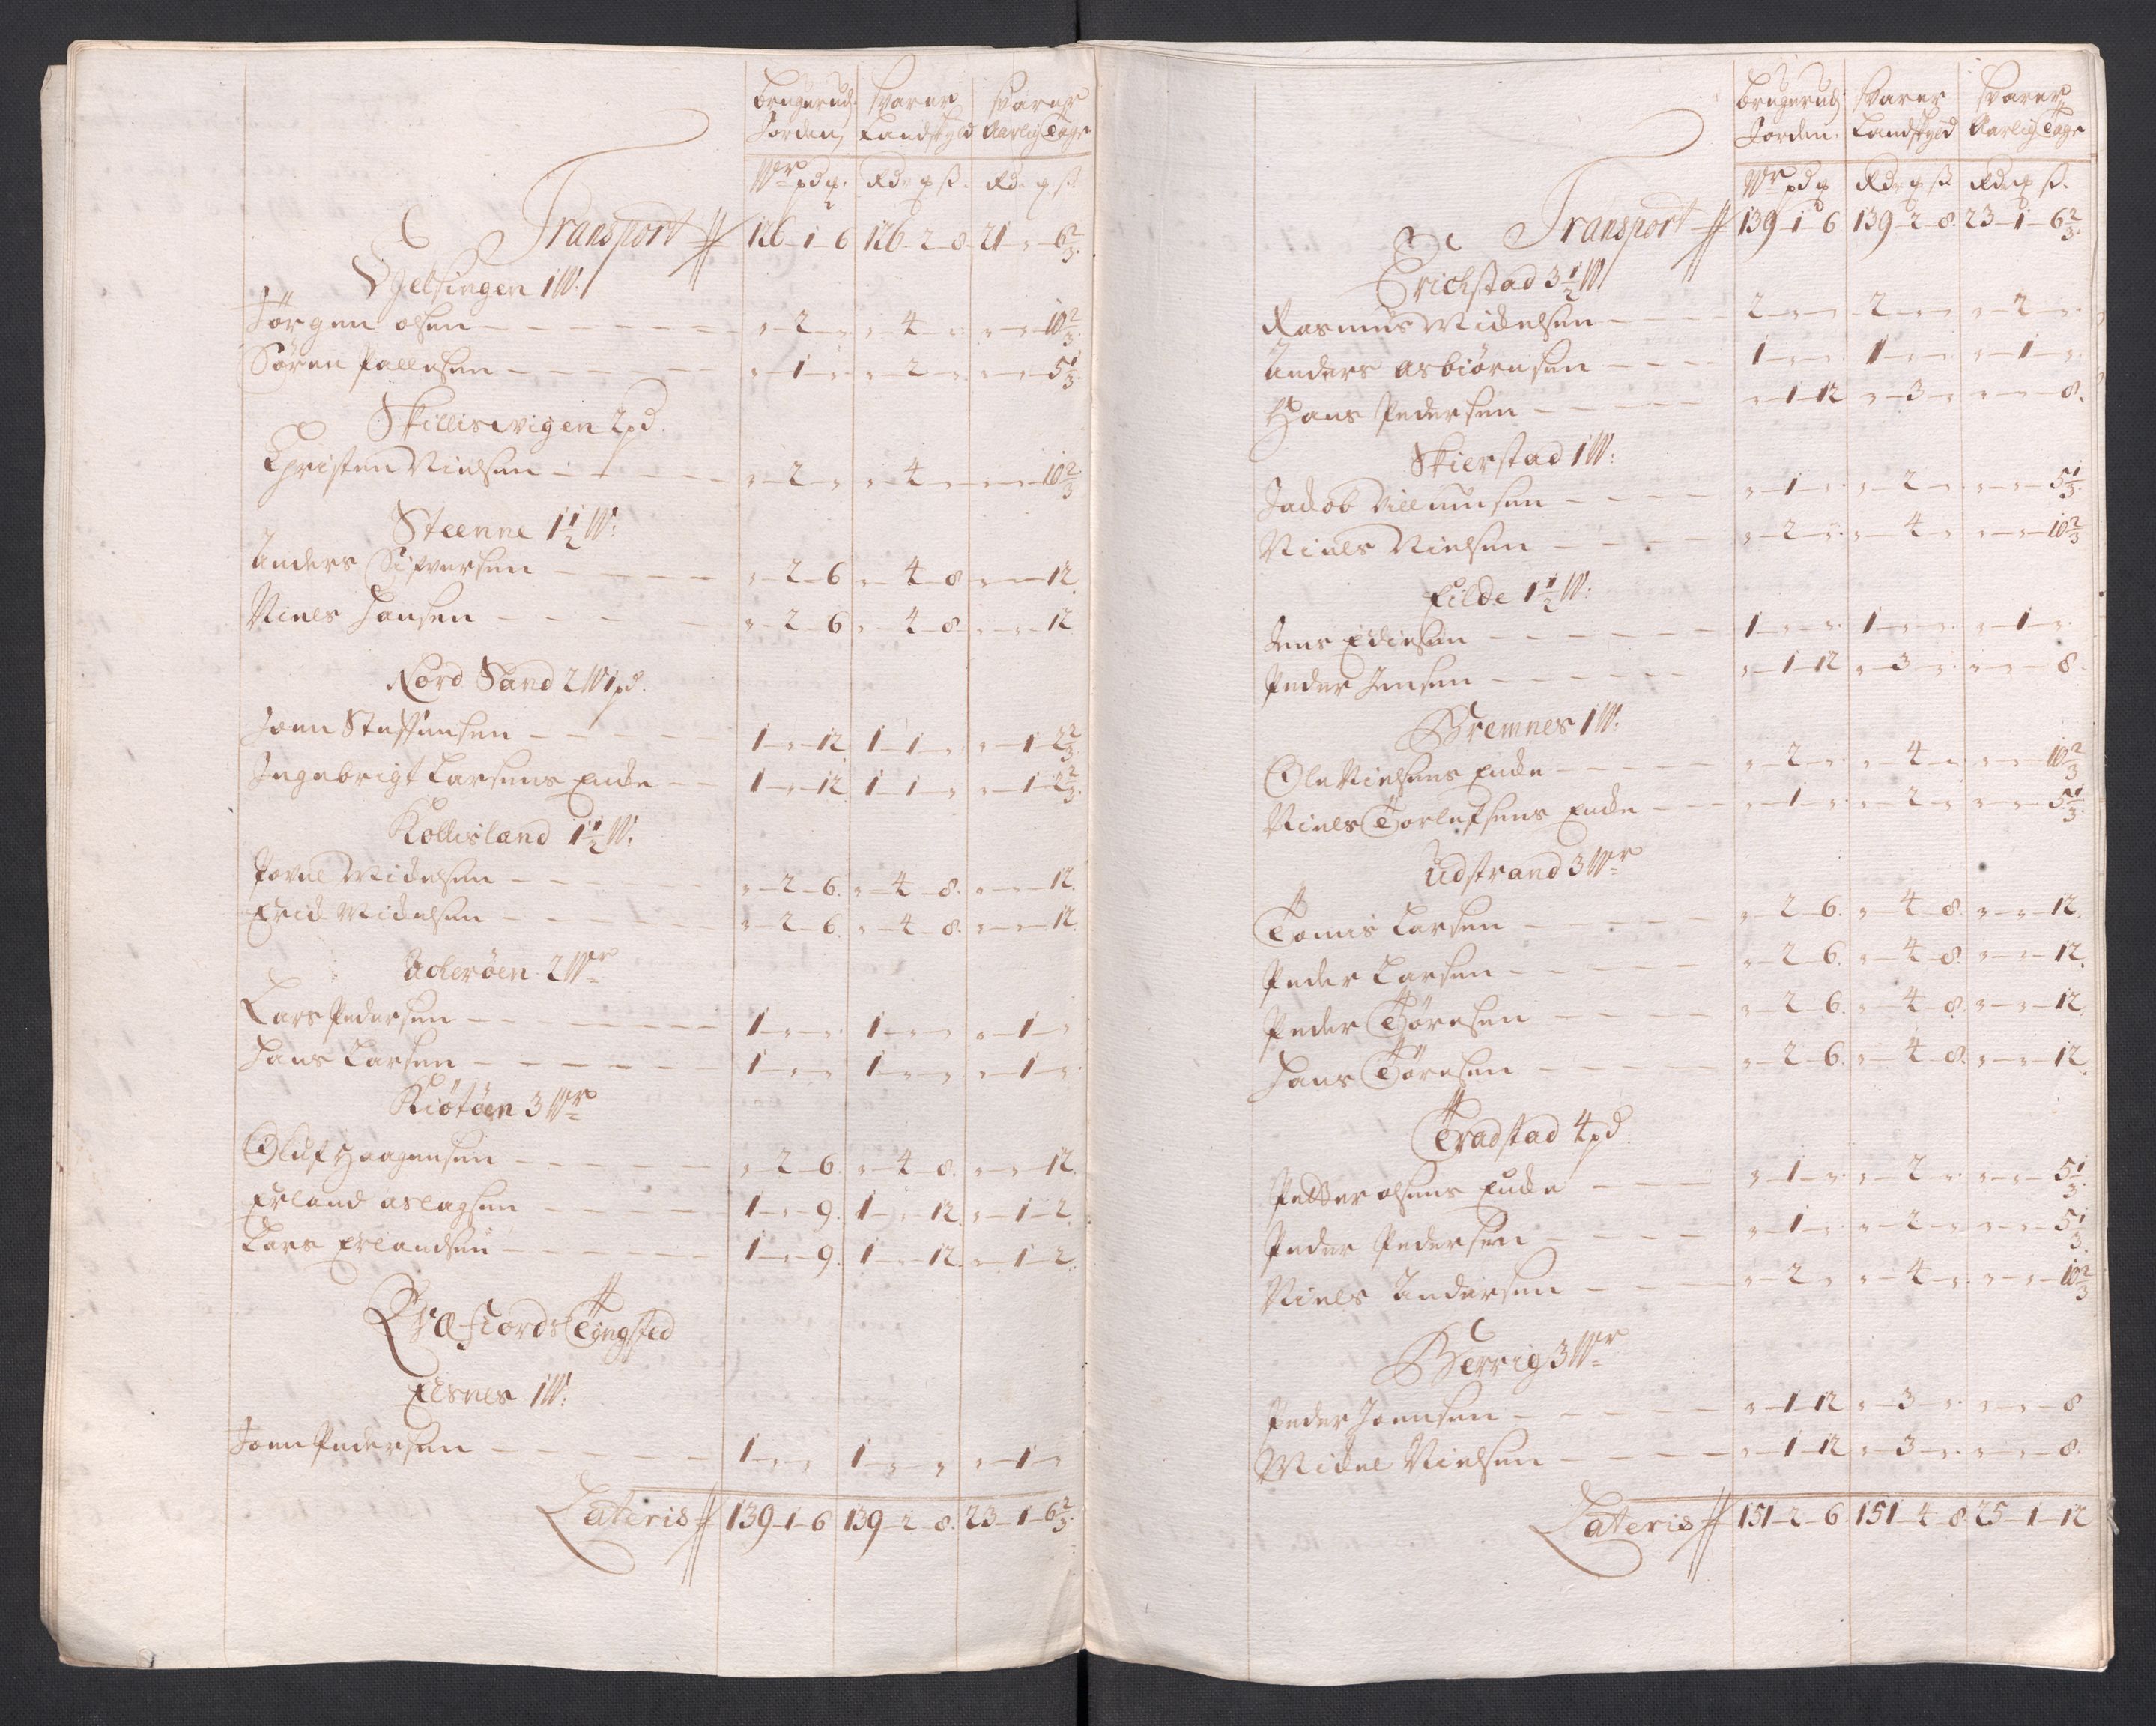 brugerud svarer svarer
Jorden Landskyld Aarlig Tage
Wr pd ȝ. Rdr ȝ ß. Rdr ȝ ß
Transport 126-1-6 126-2-8. 21-"-6 2/3.
Gjelsingen 1 W.
Jörgen olsen - - - "-2-" "-4-" "-"-10 2/3.
Sören Pallesen - - - "-1-" "-2-" "-"-5 1/3.
Skilliswigen 2 pd.
Christen Nielsen - - - "-2-" "-4-" "-"-10 2/3
Steenne 1 1/2 W:
Anders Sifversen - - - "-2-6 "-4-8 "-"-12
Niels Hansen - - - "-2-6 "-4-8 "-"-12
Nord Sand 2 W 1 pd.
Joen Steffensen - - - 1-"-12 1-1-" "-1-2 2/3
Ingebrigt Larsens Encke - - 1-"-12 1-1-" "-1-2 2/3.
Kollisland 1 1/2 W.
Povel Mickelsen - - - "-2-6. "-4-8. "-"-12.
Erick Mickelsen - - - "-2-6. "-4-8. "-"-12.
Uderöen 2 Wr
Lars Pedersen - - - 1-"-" 1-"-" "-1-"
Hans Larsen - - - 1-"-" 1-"-" "-1-"
Kiötöen 3 Wr
Oluf Haagensen - - - "-2-6. "-4-8. "-"-12.
Erland aslagsen - - - 1-"-9. 1-"-12. "-1-2.
Lars Erlandsen - - - 1-"-9. 1-"-12. "-1-2.
Qvæfiords Tingsted
Elsnes 1 W:
Joen Pedersen - - - 1-"-" 1-"-" "-1-"
Lateris 139-1-6 139-2-8. 23-1-6 2/3.
brugerud svarer svarer
Jorden. Landskyld Aarlig Tage
Wr pd ȝ Rdr ȝ ß Rdr ȝ ß.
Transport 139-1-6 139-2-8. 23-1-6 2/3.
Erichstad 3 1/2 W
Rasmus Mickelsen - - - 2-"-" 2-"-" "-2-"
Anders Asbiörnsen - - - 1-"-" 1-"-" "-1-"
Hans Pedersen - - - "-1-12 "-3-" "-"-8.
Skierstad 1 W:
Jackob Villumsen - - - "-1-" "-2-" "-"-5 1/3.
Niels Nielsen - - - "-2-" "-4-" "-"-10 2/3
Eilde 1 1/2 W:
Jens Edisen - - - 1-"-" 1-"-" "-1-"
Peder Jensen - - - "-1-12 "-3-" "-"-8.
Bremnes 1 W.
Ole Nielsens Encke - - - "-2-" "-4-" "-"-10 2/3
Niels Torlefsens Encke - - "-1-" "-2-" "-"-5 1/3.
Udstrand 3 Wr
Tomis Larsen - - - "-2-6. "-4-8. "-"-12.
Peder Larsen - - - "-2-6. "-4-8. "-"-12.
Peder Töresen - - - "-2-6. "-4-8. "-"-12.
Hans Töresen - - - "-2-6. "-4-8. "-"-12.
Tradstad 4 pd.
Petter olsens Encke - - - "-1-" "-2-" "-"-5 1/3.
Peder Pedersen - - - "-1-" "-2-" "-"-5 1/3.
Niels Andersen - - - "-2-" "-4-" "-"-10 2/3
Berrig 3 Wr
Peder Joensen - - - "-1-12 "-3-" "-"-8
Mickel Nielsen - - - "-1-12 "-3-" "-"-8.
Lateris 151-2-6. 151-4-8 25-1-12